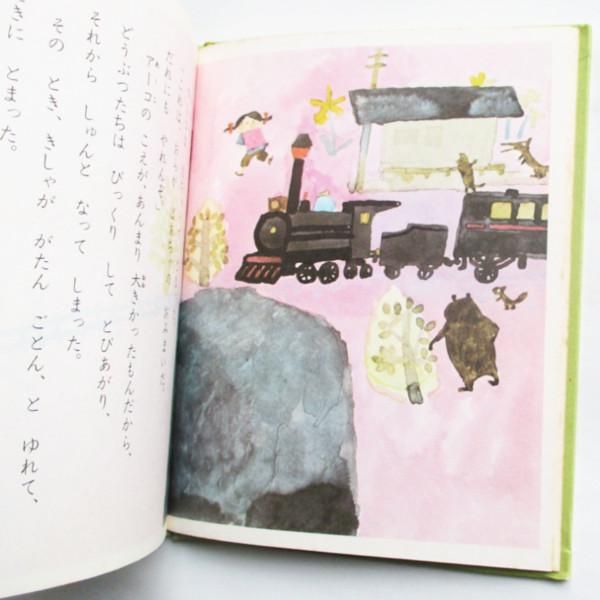 だれにも やれんぞ。
アーコの こえが、あんまり 大きかったもんだから、
どうぶつたちは びっくり して とびあがり、
それから しゅんと なって しまった。
その とき、きしゃが がたん ごとん、と ゆれて、
きに とまった。